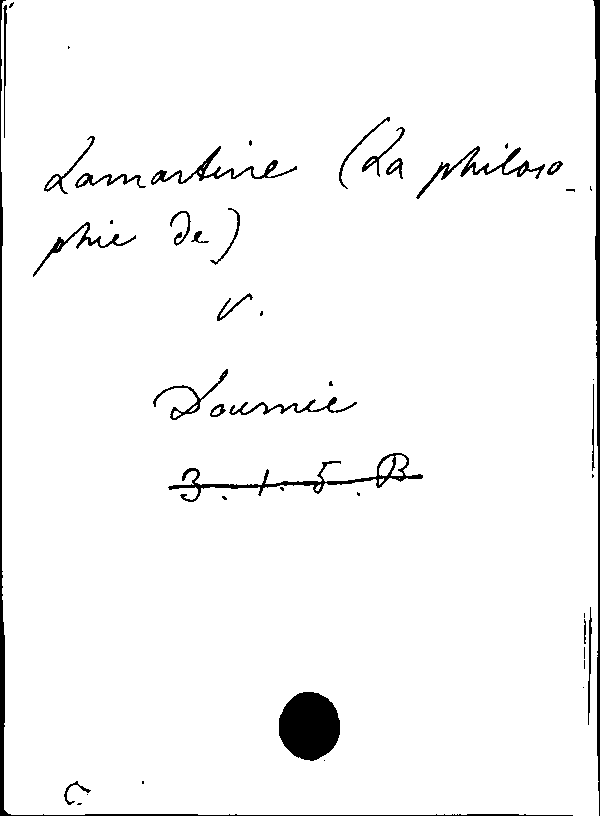 Lamartine (La philoso-
phie de)
v.
Doumic
3.1.5.B